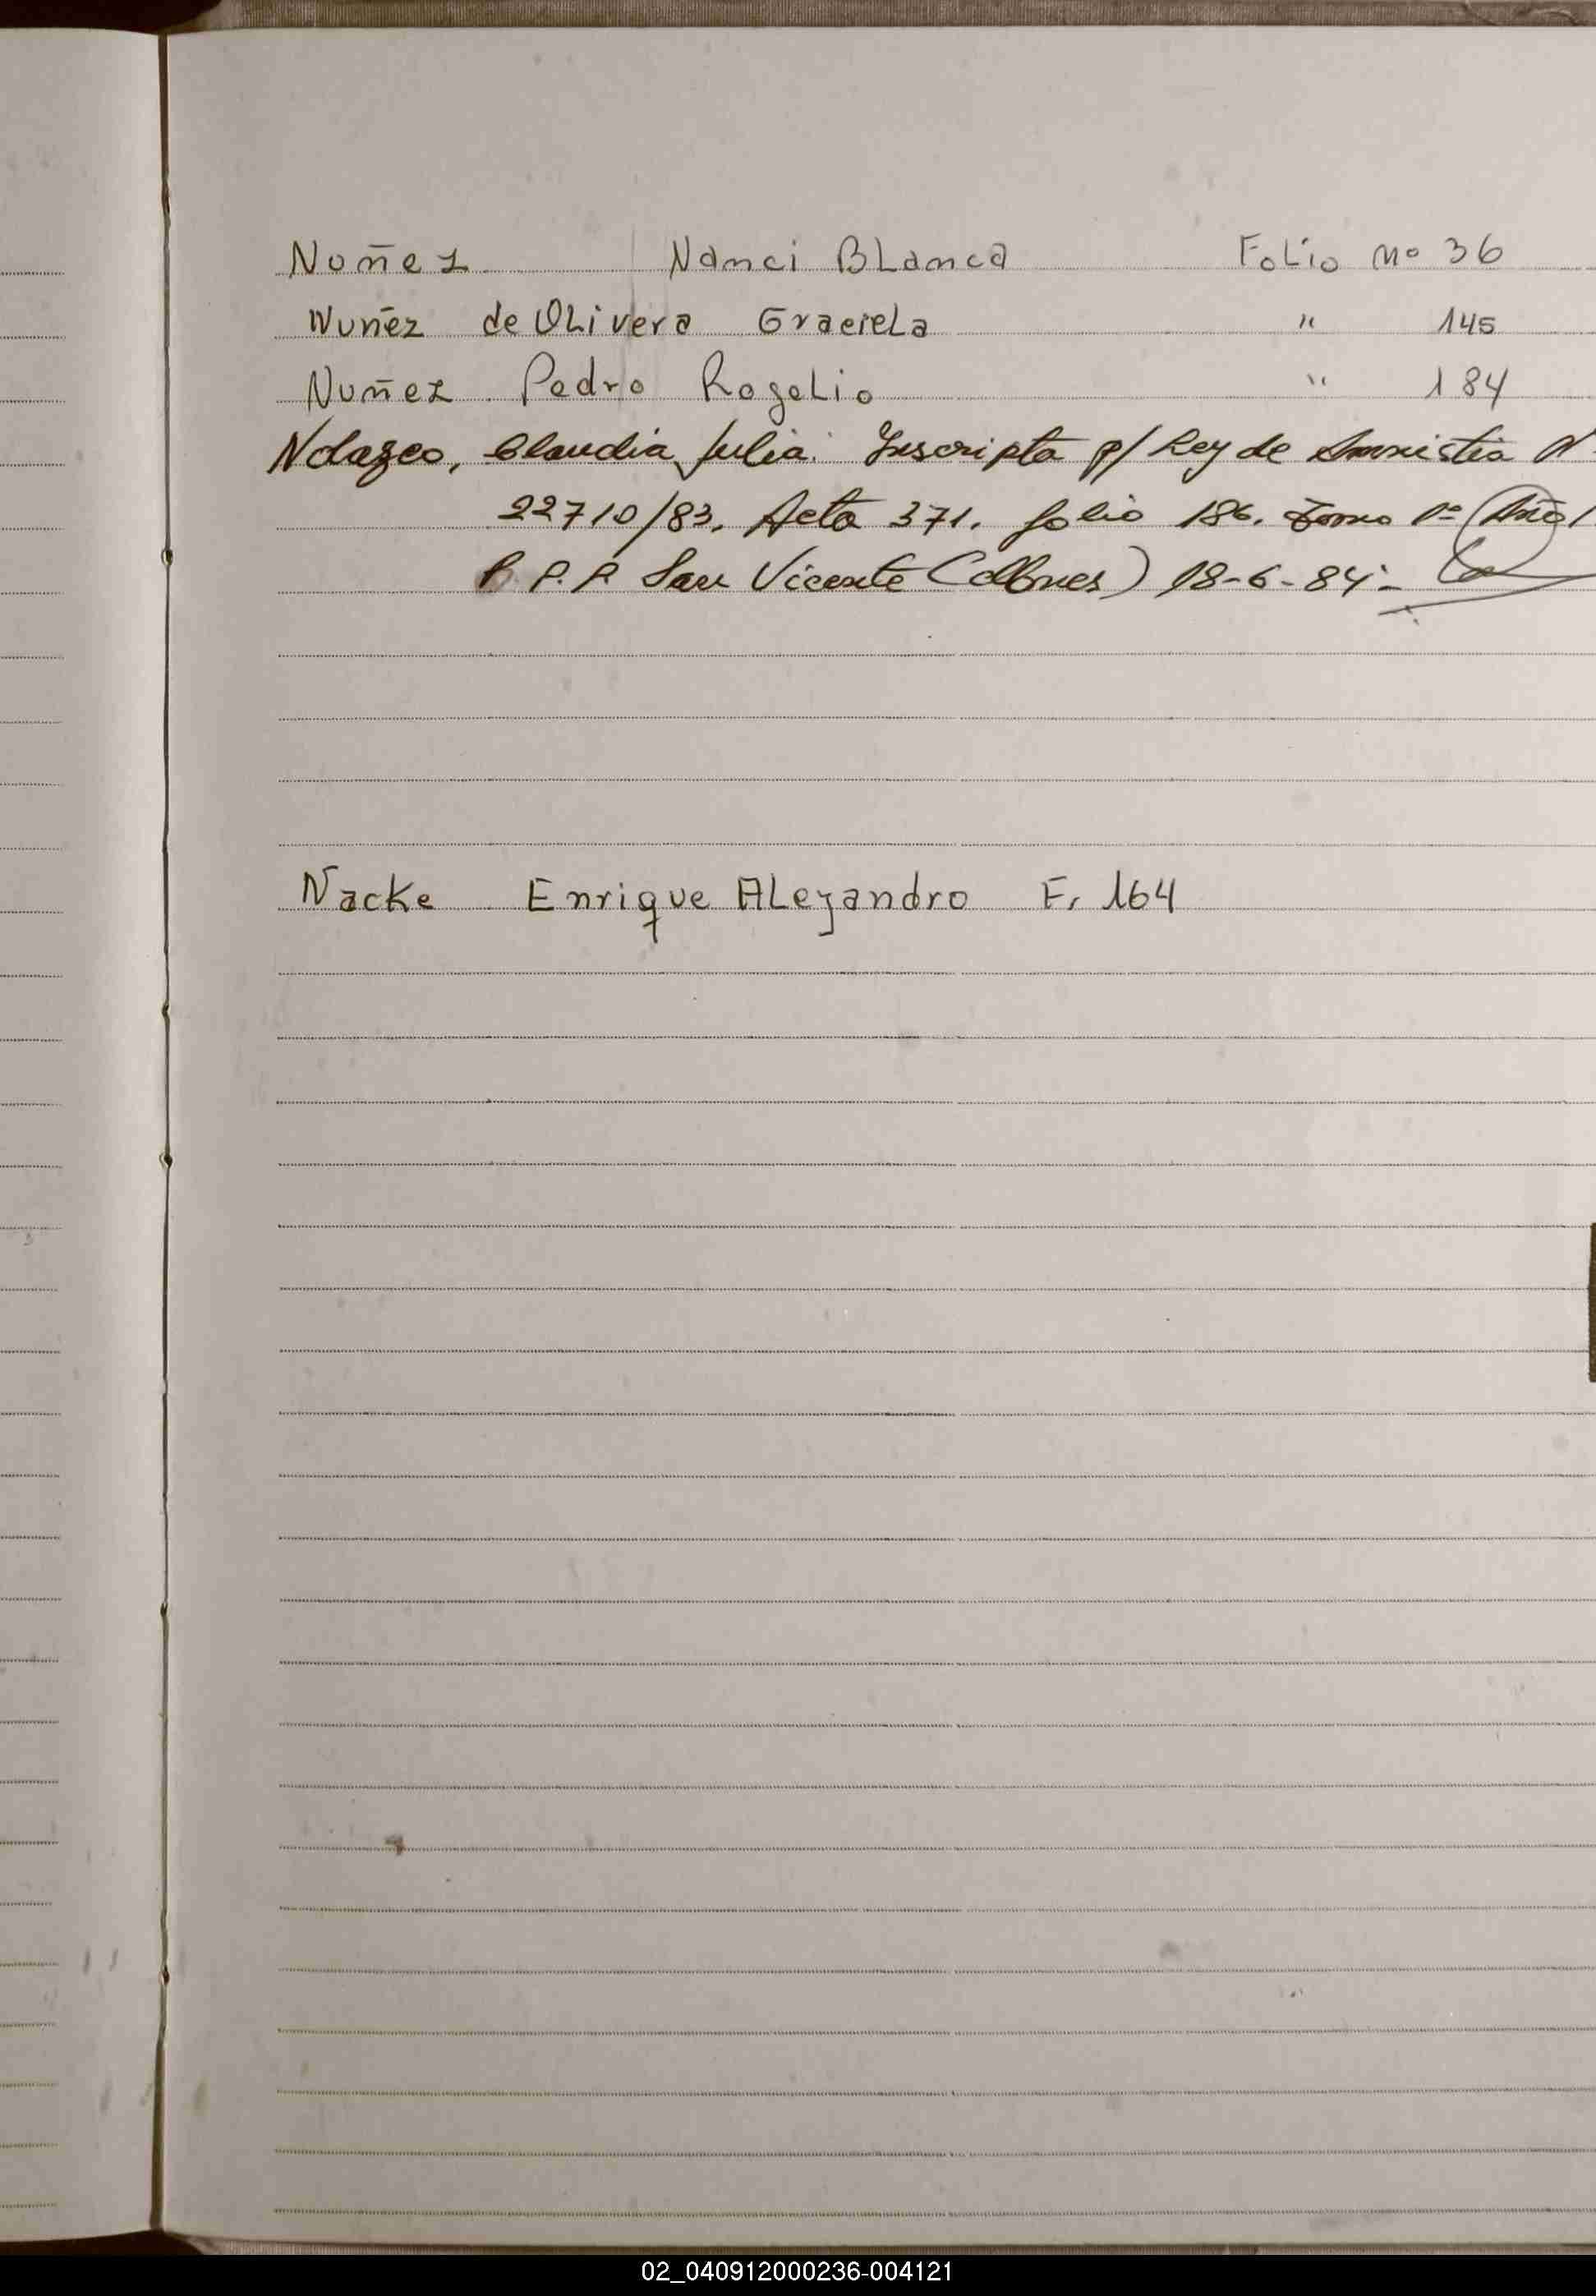 Nuñez Nanci Blanca Folio nº 36
Nuñez de Olivera Graciela " 145
Nuñez Pedro Rogelio " 184
Nolazco, Claudia Julia. Inscripta p/ Ley de Amnistia N
22710/83. Acta 371. folio 186. Tomo 1º (Año 1
San Vicente ( 18-6-84.-
Nacke Enrique Alejandro F. 164
02_040912000236-004121